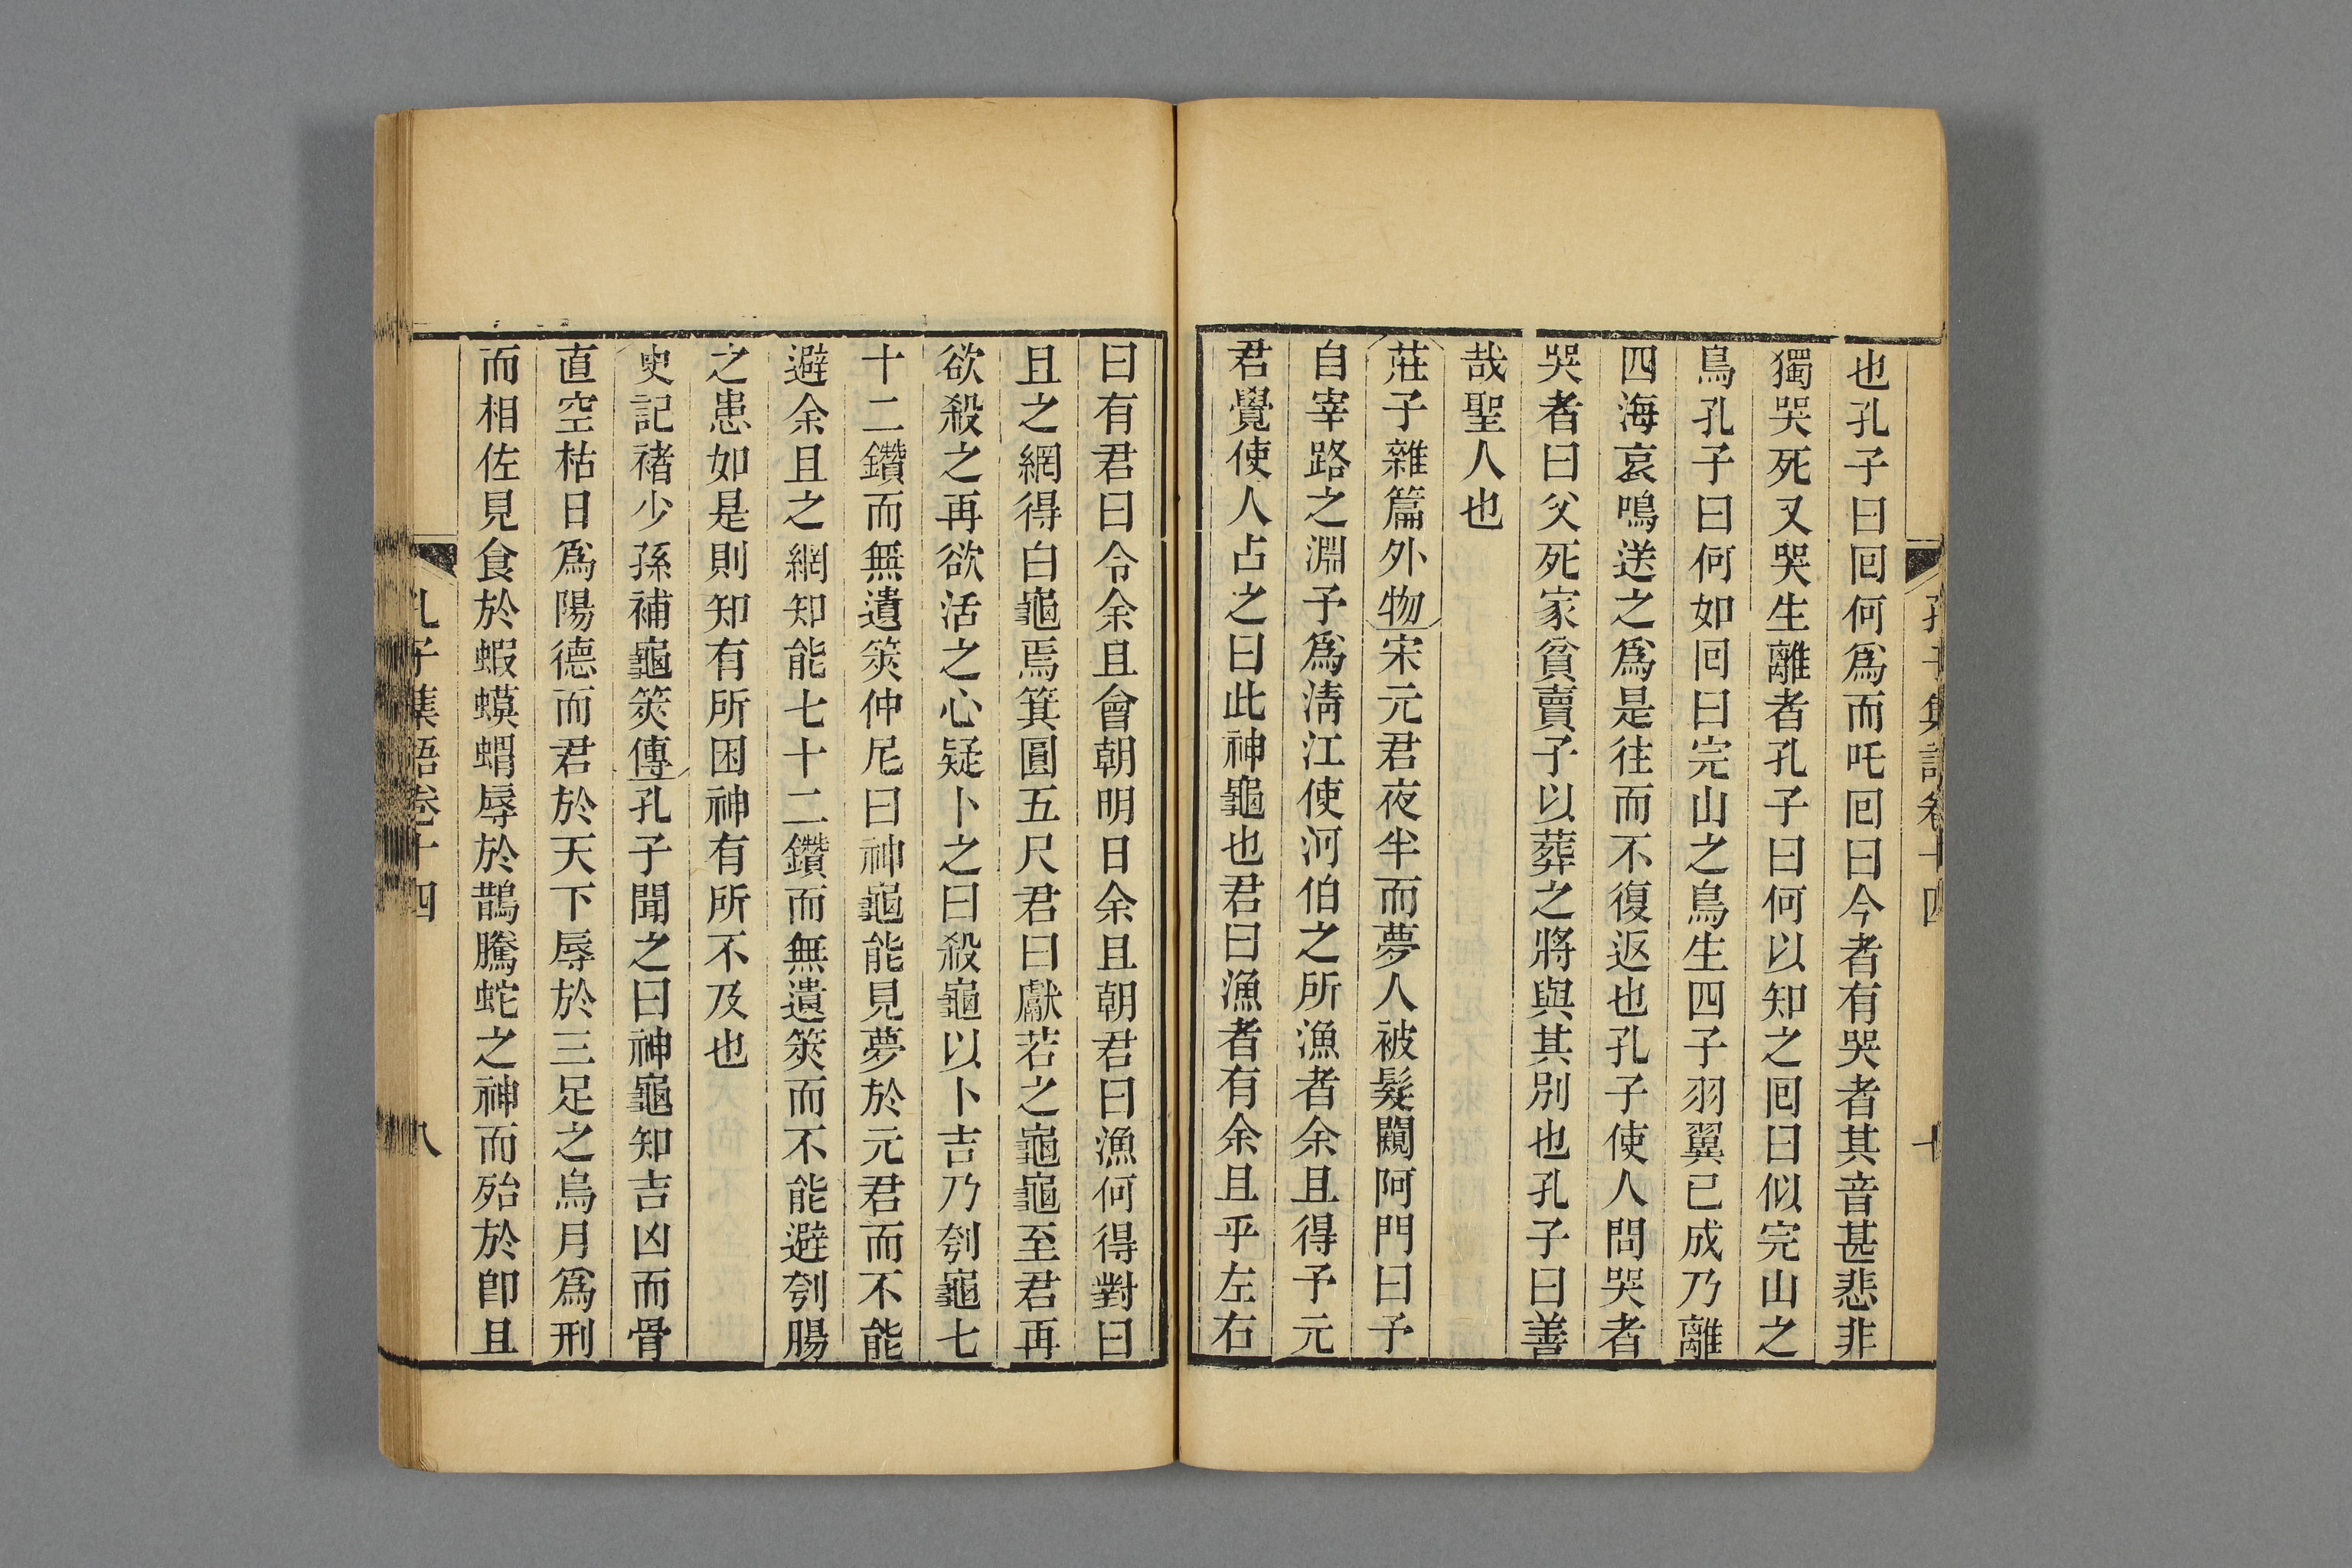 也孔子曰回何爲而吒回曰今者有哭者其音甚悲非
獨哭死又哭生離者孔子曰何以知之回曰似完山之
鳥孔子曰何如回曰完山之鳥生四子羽翼已成乃離
四海哀鳴送之爲是往而不復返也孔子使人問哭者
哭者曰父死家貧賣子以葬之將與其別也孔子曰善
哉聖人也
莊子雜篇外物宋元君夜半而夢人被髮闚阿門曰予
自宰路之淵予爲淸江使河伯之所漁者余且得予元
君覺使人占之曰此神龜也君曰漁者有余且乎左右
曰有君曰令余且會朝明日余且朝君曰漁何得對曰
且之網得白龜焉箕圓五尺君曰獻若之龜龜至君再
欲殺之再欲活之心疑卜之曰殺龜以卜吉乃刳龜七
十二鑽而無遺筴仲尼曰神龜能見夢於元君而不能
避余且之網知能七十二鑽而無遺筴而不能避刳腸
之患如是則知有所困神有所不及也
史記褚少孫補龜筴傳孔子聞之曰神龜知吉凶而骨
直空枯日爲陽德而君於天下辱於三足之烏月爲刑
而相佐見食於蝦蟆蝟辱於鵲騰蛇之神而殆於卽且
孔子集語卷十四
八